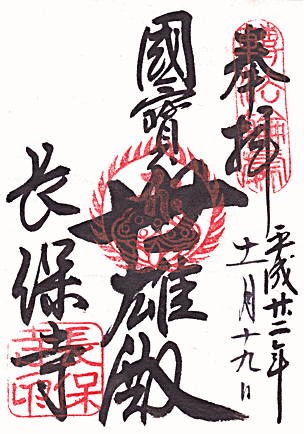 奉拝
平成廿二年
十一月十九日
國寳
世雄殿
長保寺
長保
寺印